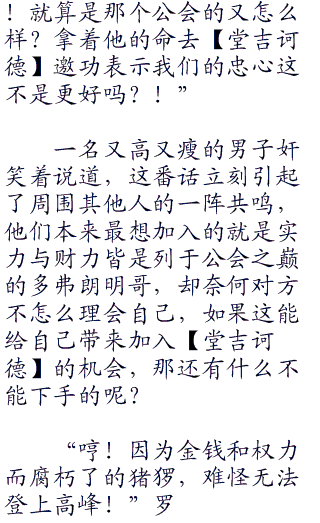 ！就算是那个公会的又怎么
样？拿着他的命去【堂吉诃
德】邀功表示我们的忠心这
不是更好吗？！”
一名又高又瘦的男子奸
笑着说道，这番话立刻引起
了周围其他人的一阵共鸣，
他们本来最想加入的就是实
力与财力皆是列于公会之巅
的多弗朗明哥，却奈何对方
不怎么理会自己，如果这能
给自己带来加入【堂吉诃
德】的机会，那还有什么不
能下手的呢？
“哼！因为金钱和权力
而腐朽了的猪猡，难怪无法
登上高峰！”罗